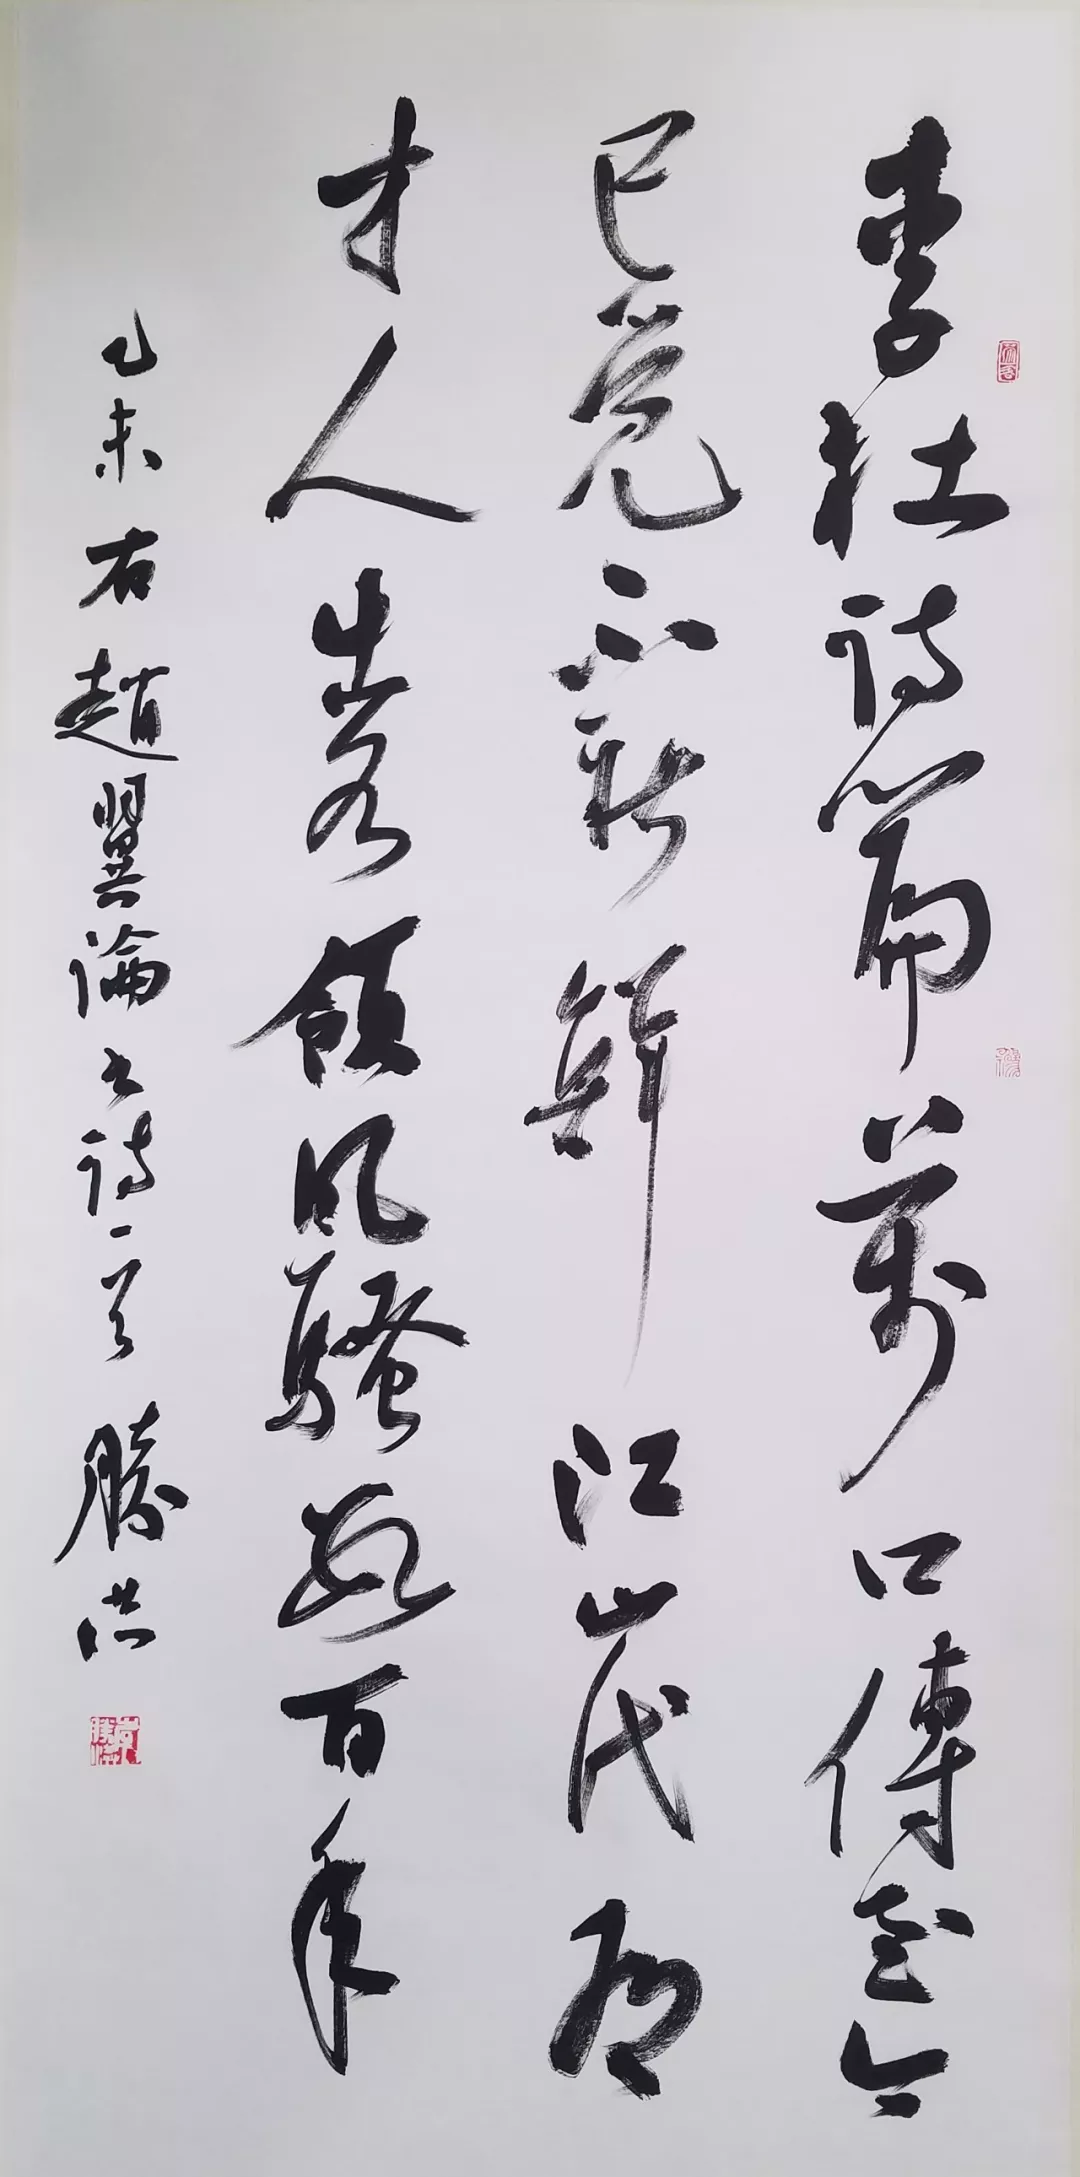 李杜詩篇萬口傳至今
已覺不新鮮江山代有
才人出各領風騷數百年
乙未右趙翼論詩一首勝洪